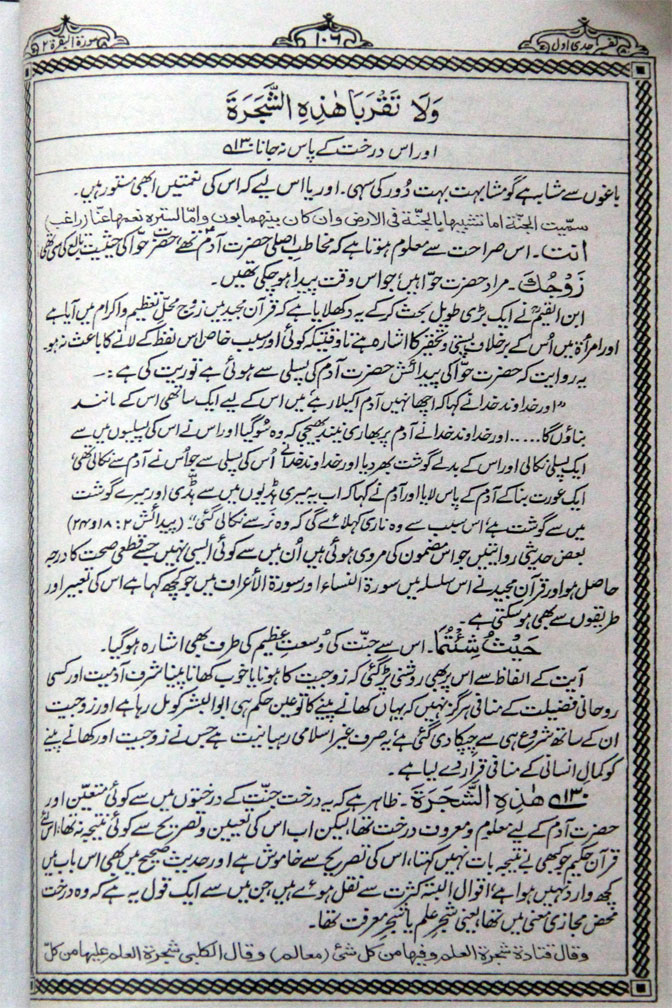 تفسیر ماجدی اول
۱۰۶
سورۃ البقرۃ ۲
وَلَا تَقْرَبَا هٰذِهِ الشَّجَرَةَ
اور اس درخت کے پاس نہ جانا ۱۳۰ے
باغوں سے مشابہ ہے گو مشابہت بہت دُور کی سہی۔ اور یا اس لیے کہ اس کی نعمتیں ابھی مستور ہیں۔
سمّیت الجنّة امّا تشبیها بالجنّة فی الارض وان کان بینهما بون وامّا لستره نعمها عنّا (راغب)
انت۔ اس صراحت سے معلوم ہوتا ہے کہ مخاطب اصلی حضرت آدمؑ تھے، حضرت حوّا کی حیثیت تابع کی سی تھی
زَوْجُكَ۔ مراد حضرت حوّا ہیں، جو اس وقت پیدا ہوچکی تھیں۔
ابن القیمؒ نے ایک بڑی طویل بحث کرکے یہ دکھلایا ہے کہ قرآن مجید میں زوج محلّ تعظیم و اکرام میں آیا ہے
اور امرأۃ میں اُس کے برخلاف پستی و تحقیر کا اشارہ ہے تاوقتیکہ کوئی اور سبب خاص اس لفظ کے لانے کا باعث نہ ہو۔
یہ روایت کہ حضرت حوّا کی پیدائش حضرت آدم کی پسلی سے ہوئی ہے توریت کی ہے:۔
"اور خداوند خدا نے کہا کہ اچھا نہیں آدم اکیلا رہے میں اس کے لیے ایک ساتھی اس کے مانند
بناؤں گا..... اور خداوند خدا نے آدم پر بھاری نیند بھیجی کہ وہ سوگیا اور اس نے اس کی پسلیوں میں سے
ایک پسلی نکالی اور اس کے بدلے گوشت بھر دیا اور خداوند خدا نے اُس کی پسلی سے جو اُس نے آدم سے نکالی تھی،
ایک عورت بنا کے آدم کے پاس لایا اور آدم نے کہا کہ اب یہ میری ہڈیوں میں سے ہڈّی اور میرے گوشت
میں سے گوشت ہے، اس سبب سے وہ ناری کہلائے گی کہ وہ نر سے نکالی گئی"۔ (پیدائش ۲: ۱۸ و ۲۴)
بعض حدیثی روایتیں جو اس مضمون کی مروی ہوئی ہیں اُن میں سے کوئی ایسی نہیں جسے قطعی صحت کا درجہ
حاصل ہو اور قرآن مجید نے اس سلسلہ میں سورۃ النساء اور سورۃ الأعراف میں جو کچھ کہا ہے اس کی تعبیر اور
طریقوں سے بھی ہوسکتی ہے۔
حَیْثُ شِئْتُمَا۔ اس سے جنّت کی وُسعتِ عظیم کی طرف بھی اشارہ ہوگیا۔
آیت کے الفاظ سے اس پر بھی روشنی پڑ گئی کہ زوجیت کا ہونا یا خوب کھانا پینا شرف آدمیت اور کسی
روحانی فضیلت کے منافی ہرگز نہیں کہ یہاں کھانے پینے کا تو عین حکم ہی ابو البشر کو مل رہا ہے اور زوجیت
ان کے ساتھ شروع ہی سے چپکا دی گئی ہے، یہ صرف غیر اسلامی رہبانیت ہے جس نے زوجیت اور کھانے پینے
کو کمال انسانی کے منافی قرار دے لیا ہے۔
۱۳۰ے هٰذِهِ الشَّجَرَةَ۔ ظاہر ہے کہ یہ درخت جنّت کے درختوں میں سے کوئی متعیّن اور
حضرت آدم کے لیے معلوم و معروف درخت تھا، لیکن اب اس کی تعیین و تصریح سے کوئی نتیجہ نہ تھا، اس لئے
قرآن حکیم جو کبھی بے نتیجہ بات نہیں کہتا، اس کی تصریح سے خاموش ہے اور حدیث صحیح میں بھی اس باب میں
کچھ وارد نہیں ہوا ہے، اقوال البتہ کثرت سے نقل ہوئے ہیں، جن میں سے ایک قول یہ ہے کہ وہ درخت
محض مجازی معنی میں تھا، یعنی شجرِ علم یا شجرِ معرفت تھا۔
وقال قتادة شجرة العلم وفیها من کل شیٔ (معالم) وقال الکلبی شجرة العلم علیها من کلّ